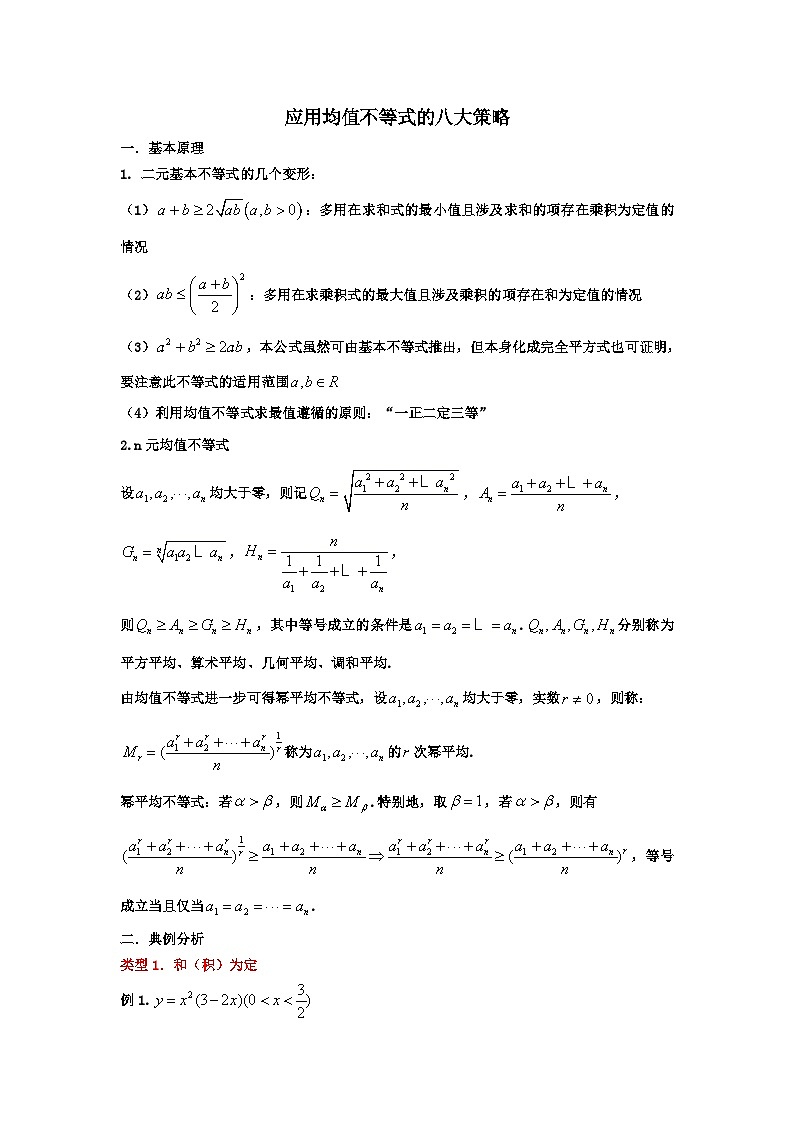 应用均值不等式的八大策略
一．基本原理
1. 二元基本不等式的几个变形：
（1）$a+b\geq 2\sqrt{ab}(a,b>0)$：多用在求和式的最小值且涉及求和的项存在乘积为定值的
情况
（2）$ab\leq \left(\frac{a+b}{2}\right)^2$：多用在求乘积式的最大值且涉及乘积的项存在和为定值的情况
（3）$a^2+b^2\geq 2ab$，本公式虽然可由基本不等式推出，但本身化成完全平方式也可证明，
要注意此不等式的适用范围$a,b\in R$
（4）利用均值不等式求最值遵循的原则：“一正二定三等”
2.n 元均值不等式
设$a_1,a_2,\cdots,a_n$均大于零，则记$Q_n=\sqrt{\frac{a_1^2+a_2^2+L\ a_n^2}{n}}$，$A_n=\frac{a_1+a_2+L+a_n}{n}$，
$G_n=\sqrt[n]{a_1a_2L\ a_n}$，$H_n=\frac{n}{\frac{1}{a_1}+\frac{1}{a_2}+L+\frac{1}{a_n}}$，
则$Q_n\geq A_n\geq G_n\geq H_n$，其中等号成立的条件是$a_1=a_2=L\ =a_n$.$Q_n,A_n,G_n,H_n$分别称为
平方平均、算术平均、几何平均、调和平均.
由均值不等式进一步可得幂平均不等式，设$a_1,a_2,\cdots,a_n$均大于零，实数$r\neq 0$，则称：
$M_r=(\frac{a_1^r+a_2^r+\cdots+a_n^r}{n})^{\frac{1}{r}}$称为$a_1,a_2,\cdots,a_n$的$r$次幂平均.
幂平均不等式：若$\alpha>\beta$，则$M_\alpha\geq M_\beta$.特别地，取$\beta=1$，若$\alpha>\beta$，则有
$(\frac{a_1^r+a_2^r+\cdots+a_n^r}{n})^{\frac{1}{r}}\geq \frac{a_1+a_2+\cdots+a_n}{n}\Rightarrow \frac{a_1^r+a_2^r+\cdots+a_n^r}{n}\geq (\frac{a_1+a_2+\cdots+a_n}{n})^r$，等号
成立当且仅当$a_1=a_2=\cdots=a_n$.
二．典例分析
类型 1．和（积）为定
例 1. $y=x^2(3-2x)(0<x<\frac{3}{2})$